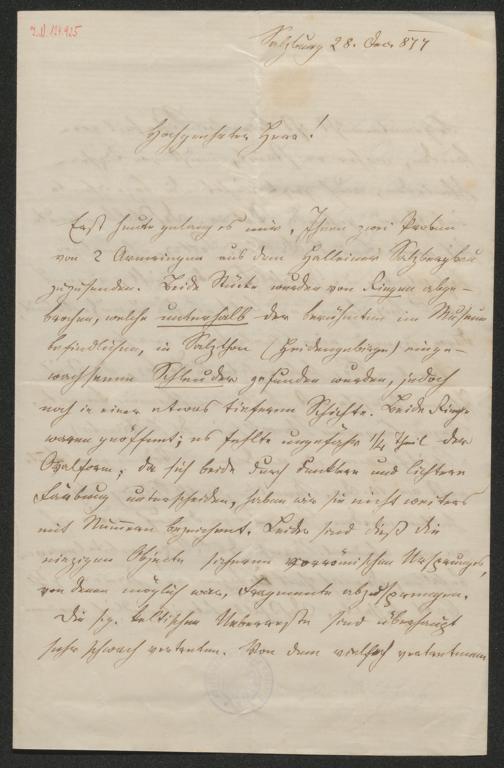 I.N. 124.925
Salzburg 28. Dec. 877
Hochgeehrter Herr!
Erst heute gelang es mir, Ihnen zwei Proben
von 2 Armringen aus dem Halleiner Salzbergbau
zuzusenden. Beide Stücke wurden von Ringen abge-
brochen, welche unterhalb der berühmten im Museum
befindlichen, in Salzthon (Heidengebirge) einge-
wachsenen Schleuder gefunden wurden, jedoch
noch in einer etwas tieferen Schichte. Beide Ringe
waren geöffnet; es fehlte ungefähr 1/4 Theil der
Ovalform; da sich beide durch dunklere und lichtere
Färbung unterscheiden, haben wir sie nicht weiters
mit Nummern bezeichnet. Leider sind dieß die
einzigen Objecte sicheren vorrömischen Ursprunges,
von denen möglich war, Fragmente abzusprengen.
Die sog. keltischen Ueberreste sind überhaupt
sehr schwach vertreten. Von dem vielfach vertretenen